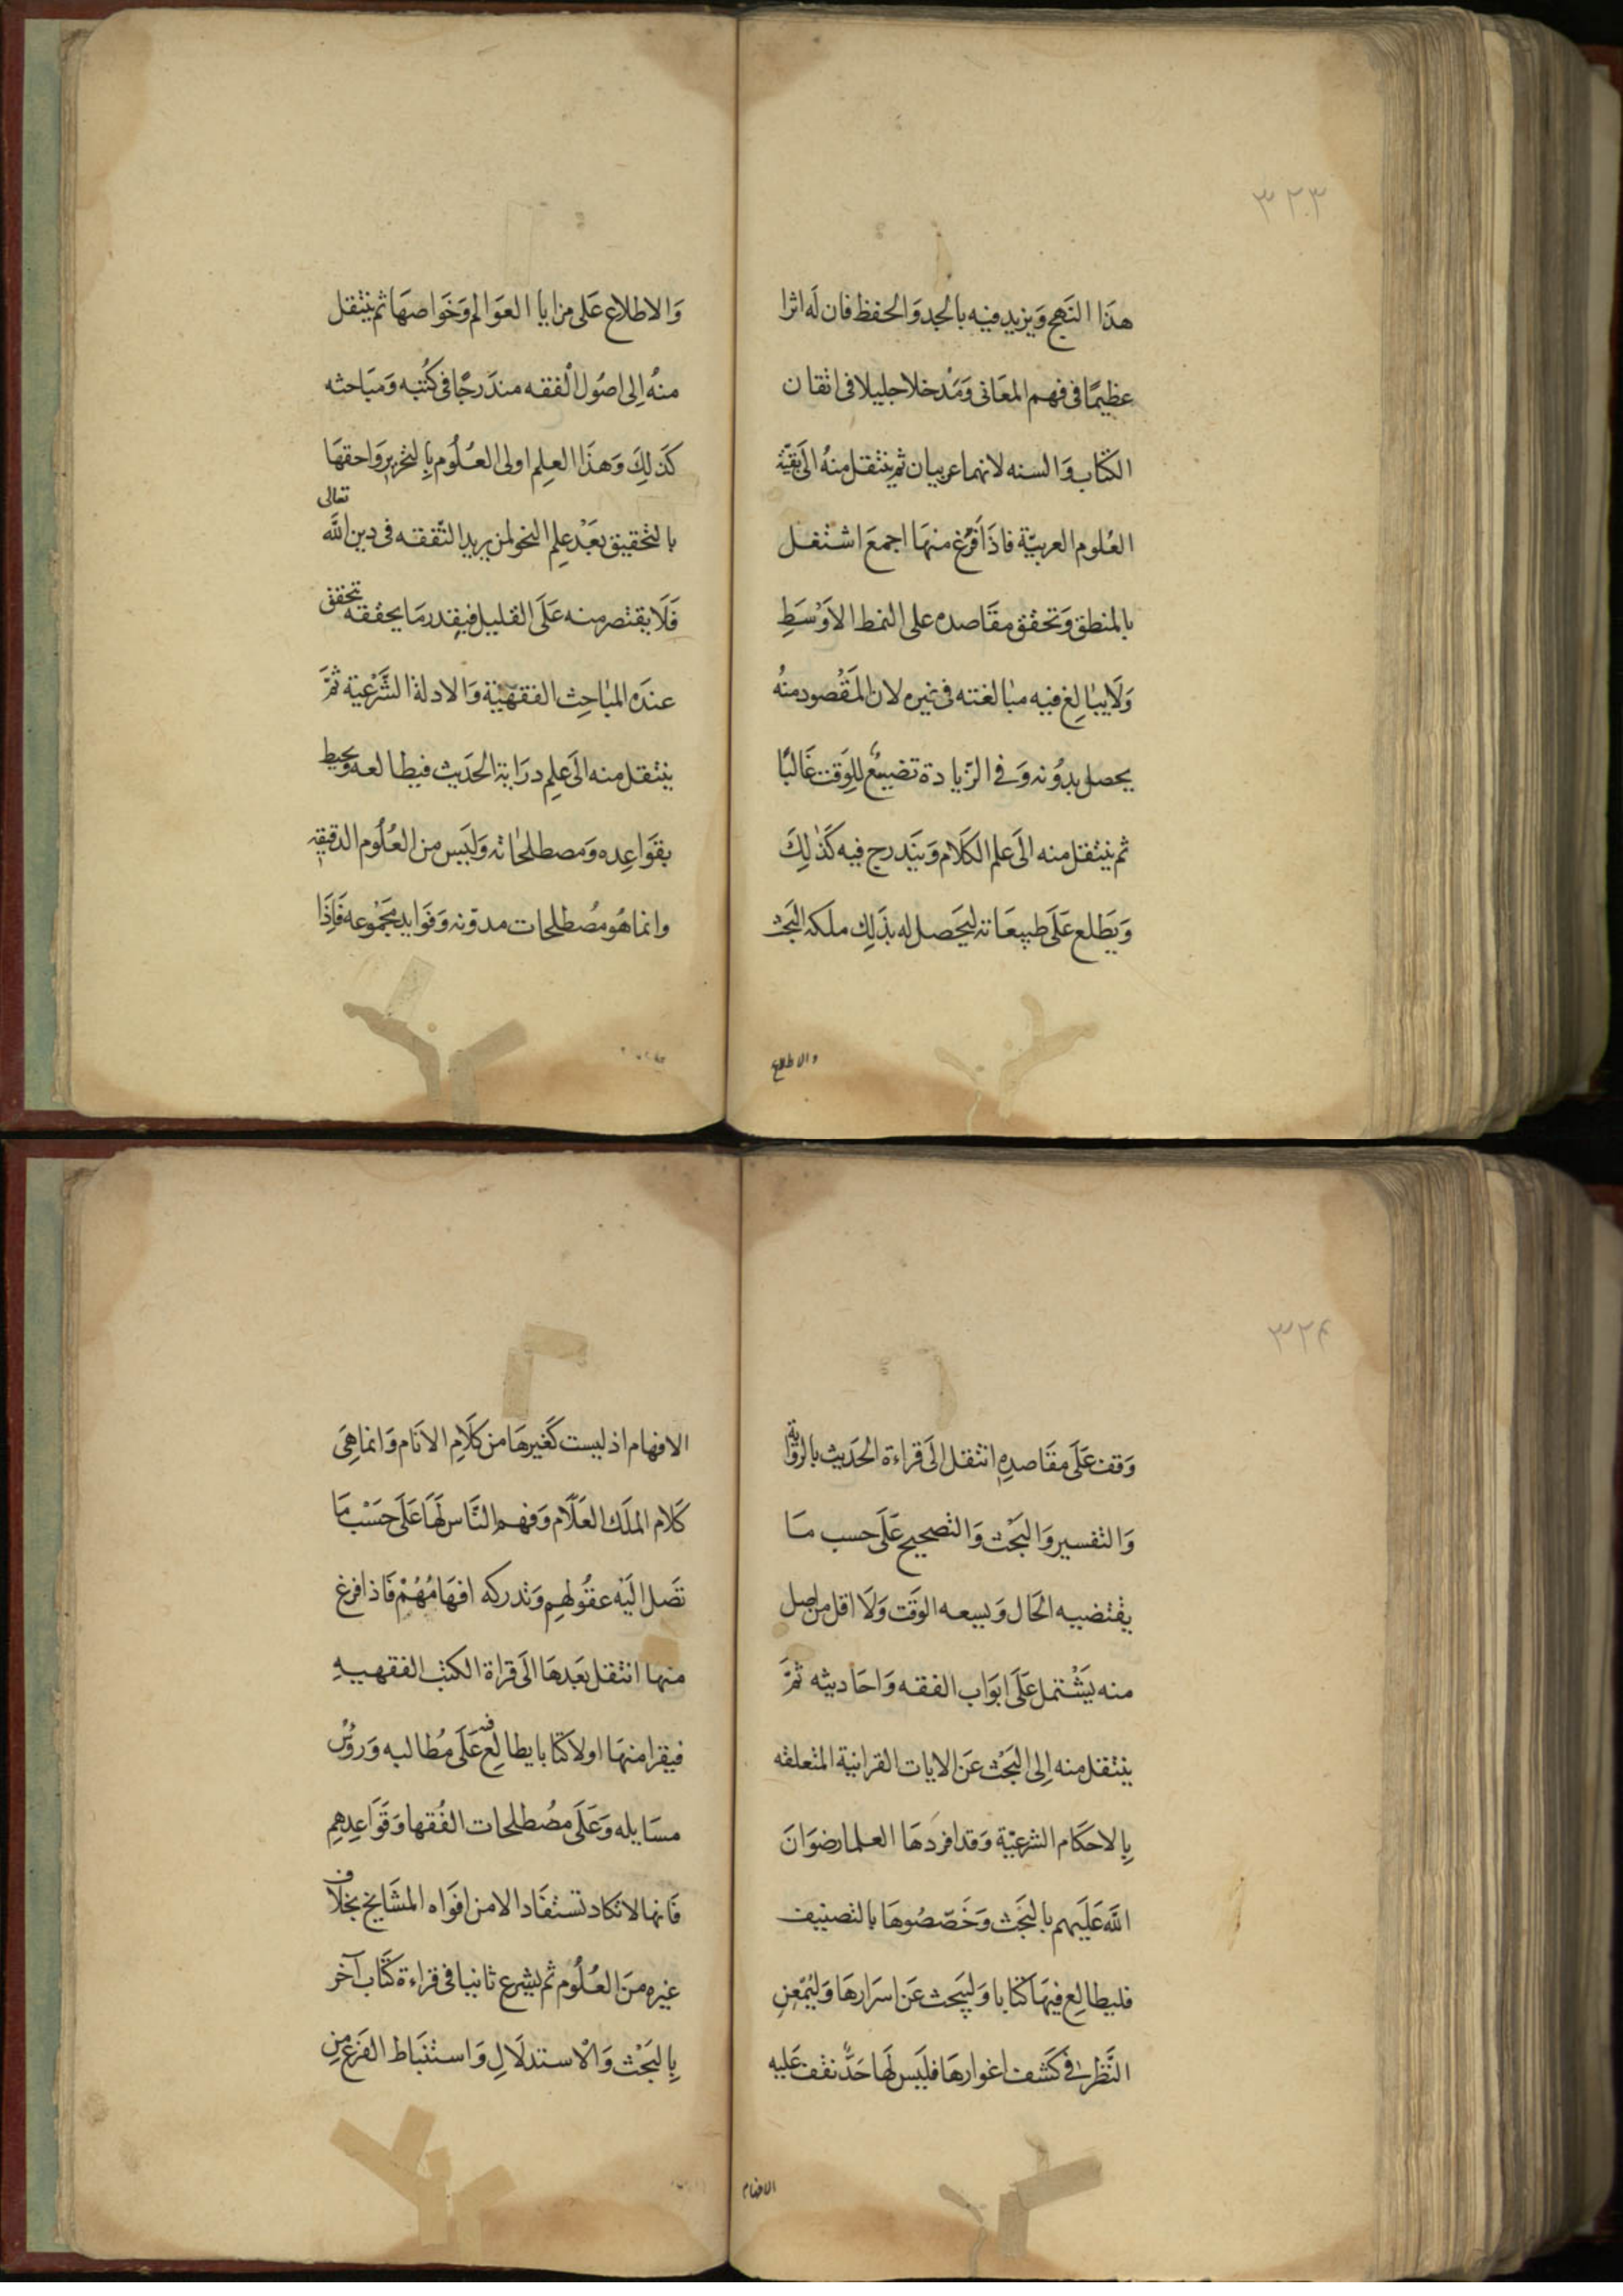 ٣٢٣
هذَا النَهج وَيزيد فيه بالجد وَالحفظ فان لَه اثرا
عظيمًا فى فهم المعَانى وَمَدخلا جليلا فى اتقان
الكتاب وَالسنه لانهما عربيان ثم ينتقل منهُ الىَ بَقيّة
العُلوم العربيّة فاذَا فَرُغ منهَا اجمعَ اشتغل
بالمنطق وَتحقق مقَاصده على النمط الاَوْسَطِ
وَلَا يبالِغ فيه مبالغته فى غيره لان المَقْصُود منهُ
يحصل بدوُنه وَفى الزّيادة تضييعٌ للِوَقت غَالبًا
ثم ينتقل منه الىَ علم الكَلَام وَيتَدرج فيه كَذلِكَ
وَيَطلع عَلَى طبيعَاته ليَحصل له بذَلِك ملكه البَحث
والاطلاع
وَالاطلاع عَلى مزايا العَوَالم وَخَواصهَا ثم ينتقل
منهُ اِلى اصُول الْفقه مندَرجًا فى كتُبه وَمبَاحثه
كذَلِكَ وَهذَا العلِم اولى العُلُوم بِالتحريرِ وَاحقهَا
بالتحقيق بعَدْ علِم النحو لمن يريد التَّفقه فى دين اللَّه تعالى
فَلَا يقتصر منه عَلَى القليل فيقدر مَا يحققه تحقق
عندَه المبَاحِث الفقهَيّة وَالادلة الشَّرْعية ثمَّ
ينتقل منه الىَ علِم درَاية الحدَيث فيطالعه وَيحيط
بقوَاعِده وَمصطلحَاته وَليَس من العُلُوم الدقيقه
وانما هُو مصُطلحات مدوّنه وَفوَايد مجَمْوعه فَاِذَا
٣٢٤
وَقف عَلَى مقَاصدِه انتقل الىَ قراءة الحَديث بالروَّاية
وَالتفسير وَالبَحْث وَالتصحيح عَلَى حسب مَا
يقتضيه الحَال وَيسعه الوَقَت وَلَا اقل من اصل
منه يَشْتمل عَلَى ابوَاب الفقه وَاحَاديثه ثمَّ
ينتقل منه اِلى البَحْث عَن الايات القرانية المتعلقه
بِالاحكَام الشرعيّة وَقد افردَهَا العلما رضوَانَ
اللَّه عَلَيهم بالبحَث وَخَصّصُوهَا بالتصنيف
فليطالِع فيهَا كتابا وَليَبحث عَن اسَرَارهَا وَليُمَعن
النَّظر فى كَشف اغوارهَا فليَس لهَا حَدٌّ نقف عَليه
الافهام
الافهام اذ ليست كَغيرهَا من كلَاِم الانَام وَانما هِىَ
كَلام الملَك العَلّام وَفهم النَّاس لَهَا عَلَى حَسْب مَا
تصَل اليَه عقوُلهِم وَتدركه افهَامُهُمْ فَاذا فرغ
منها انتقل بعَدهَا الىَ قراة الكتب الفقهييهِ
فيقرا منهَا اولاَ كتَابا يطالِع فيه عَلَى مُطالبه وَروُسْ
مسَايله وَعَلَى مصُطلحات الفُقها وَقوَاعِدهِم
فَانها لا تكاد تستفَاد الا من افوَاه المشَايخ بخلاف
غيره منَ العُلُوم ثم يشرع ثانيا فى قراءة كتَاب آخر
بِالبَحْث وَالْاستدلَالِ وَاستنبَاط الفرَع مِن